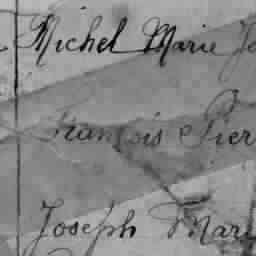 Michel Marie Jo
François Pier
Joseph Mari